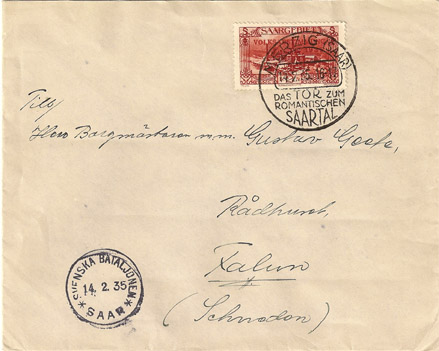 SAARGEBIET
VOLKS
MERZIG (SAAR)
DAS TOR ZUM
ROMANTISCHEN
SAARTAL
Till
Herr Borgmästaren m.m. Gustav
Rådhuset,
Falun
(Schweden)
SVENSKA BATALJONEN
14.2.35
* SAAR *